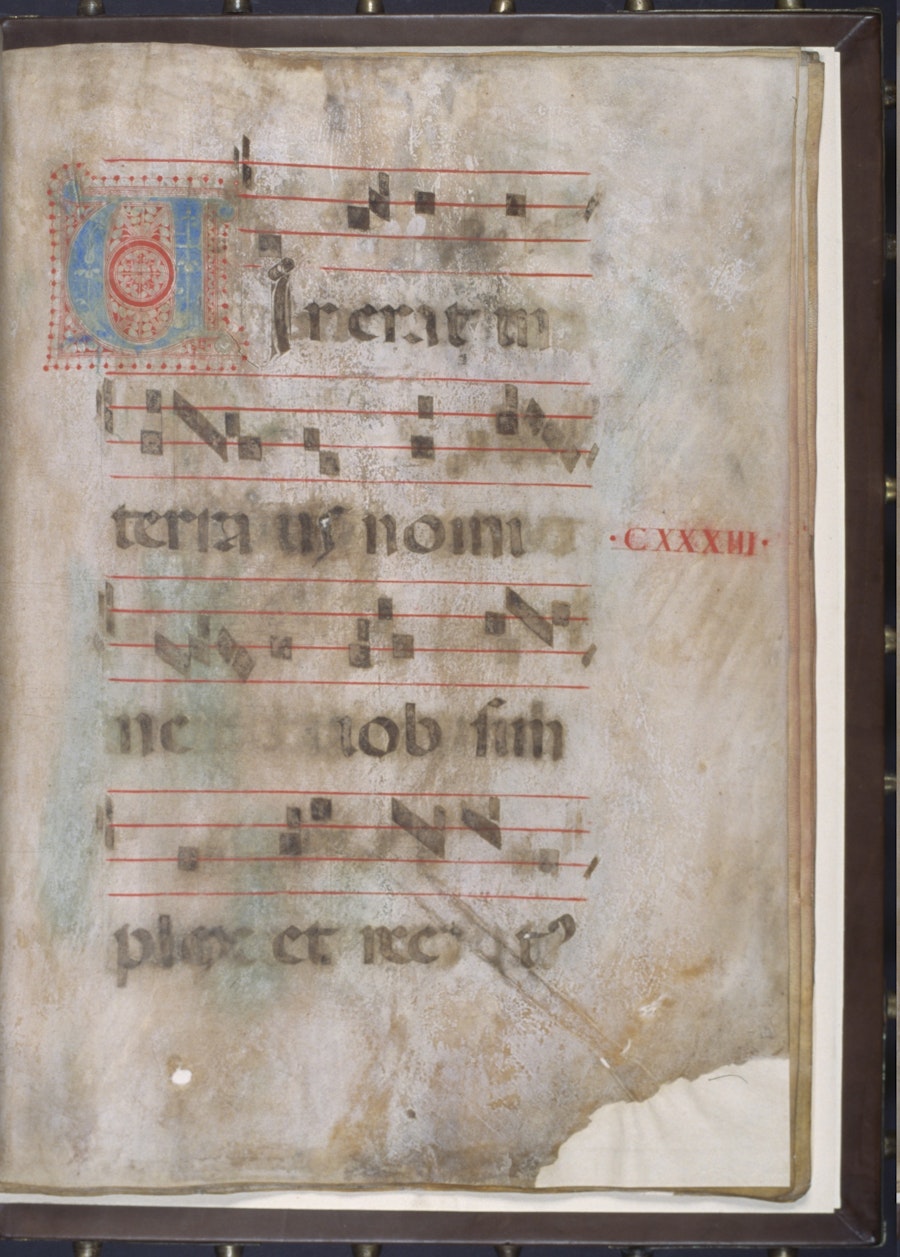 VIr erat in
terra us nomi
ne iob sim
plex et rec tꝰ
·CXXXIII·